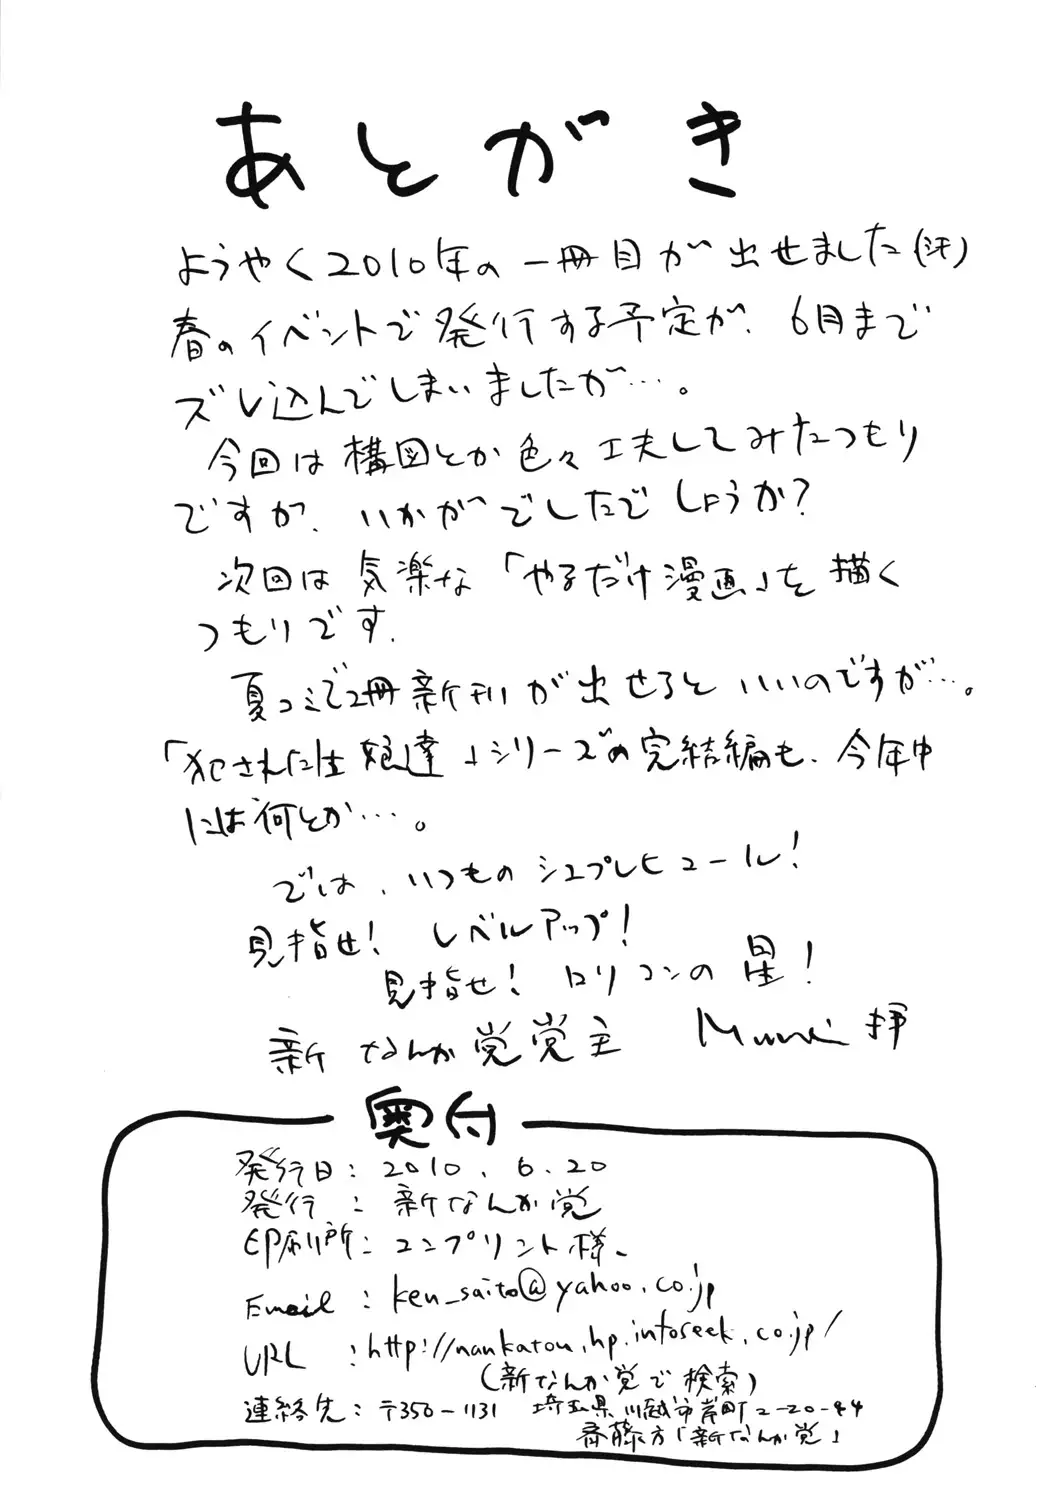 あとがき
ようやく2010年の一冊目が出せました(汗)
春のイベントで発行する予定が、6月まで
ズレ込んでしまいましたが…。
今回は構図とか色々工夫してみたつもり
ですが、いかがでしたでしょうか?
次回は気楽な「やるだけ漫画」を描く
つもりです。
夏コミで2冊新刊が出せるといいのですが…。
「犯された性娘達」シリーズの完結編も、今年中
には何とか…。
では、いつものシュプレヒコール!
見指せ! レベルアップ!
見指せ! ロリコンの星!
新なんか党党主 拝
奥付
発行日: 2010.6.20
発行 : 新なんか党
印刷所: コンプリント様、
Email : ken_saito@yahoo.co.jp
URL : http://nankatou.hp.infoseek.co.jp/
(新なんか党で検索)
連絡先: 〒350-1131 埼玉県川越市岸町2-20-44
斉藤方「新なんか党」